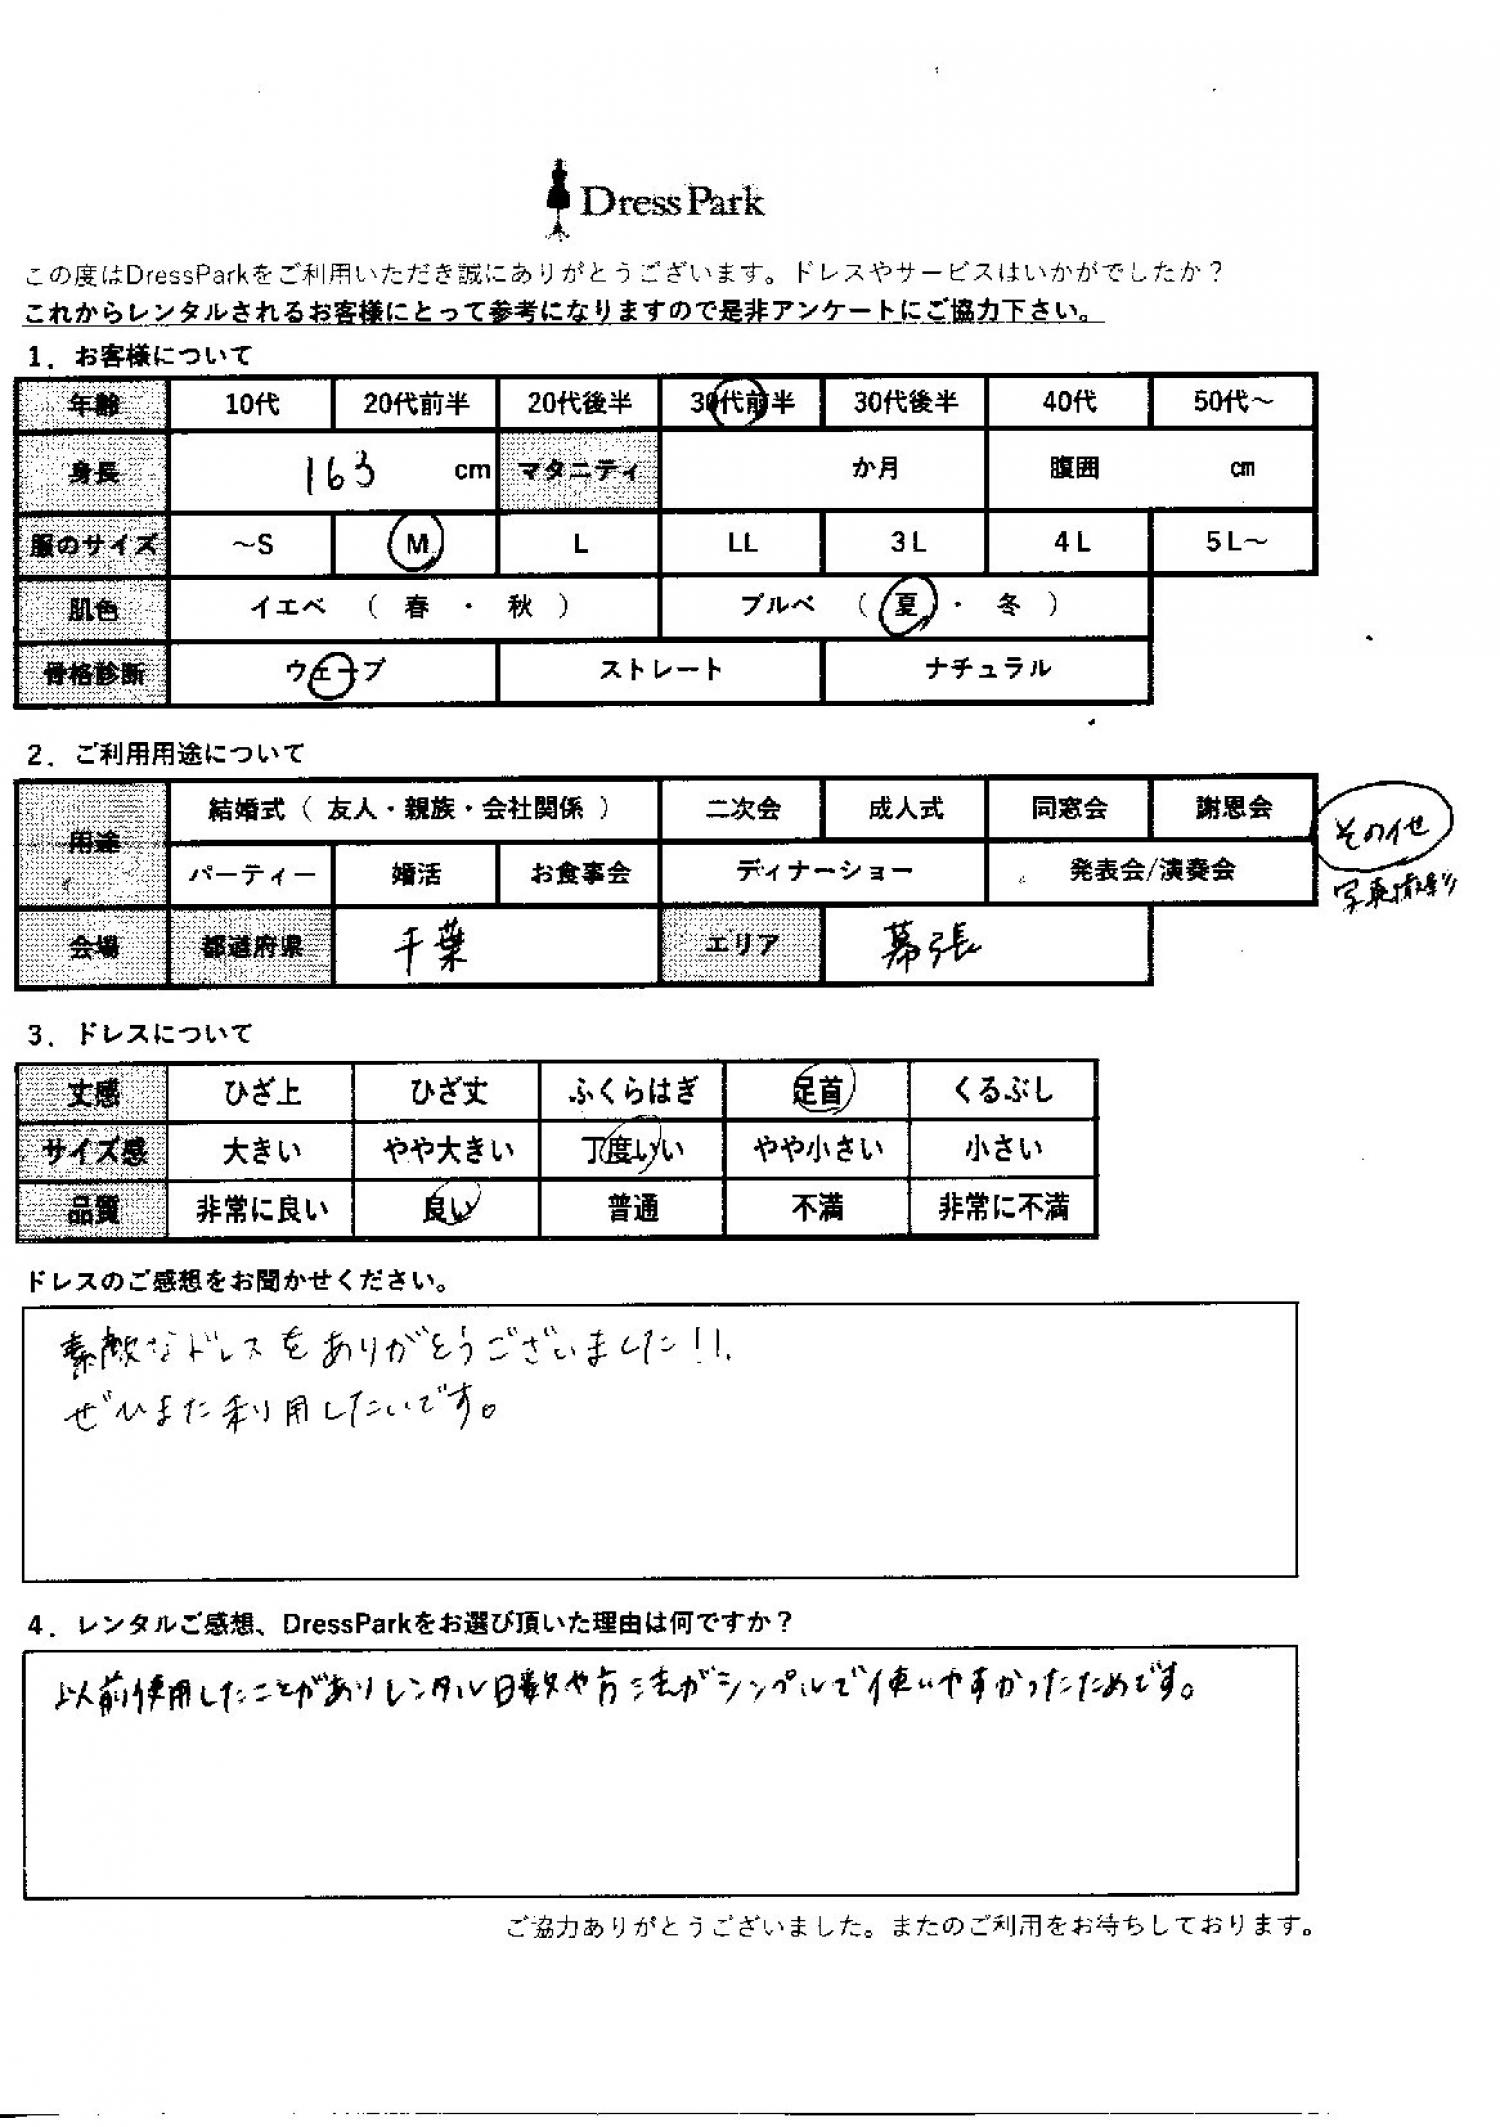 Dress Park
この度はDressParkをご利用いただき誠にありがとうございます。ドレスやサービスはいかがでしたか？
これからレンタルされるお客様にとって参考になりますので是非アンケートにご協力下さい。
1．お客様について
年齢 10代 20代前半 20代後半 30代前半 30代後半 40代 50代～
身長 163 cm マタニティ か月 腹囲 ㎝
服のサイズ ～S M L LL 3L 4L 5L～
肌色 イエベ （ 春 ・ 秋 ） ブルベ （ 夏 ・ 冬 ）
骨格診断 ウェーブ ストレート ナチュラル
2．ご利用用途について
用途 結婚式（ 友人・親族・会社関係 ） 二次会 成人式 同窓会 謝恩会 その他
パーティー 婚活 お食事会 ディナーショー 発表会/演奏会 写真撮影
会場 都道府県 千葉 エリア 幕張
3．ドレスについて
丈感 ひざ上 ひざ丈 ふくらはぎ 足首 くるぶし
サイズ感 大きい やや大きい 丁度いい やや小さい 小さい
品質 非常に良い 良い 普通 不満 非常に不満
ドレスのご感想をお聞かせください。
素敵なドレスをありがとうございました!!
ぜひまた利用したいです。
4．レンタルご感想、DressParkをお選び頂いた理由は何ですか？
以前使用したことがありレンタル日数や方法がシンプルで使いやすかったためです。
ご協力ありがとうございました。またのご利用をお待ちしております。